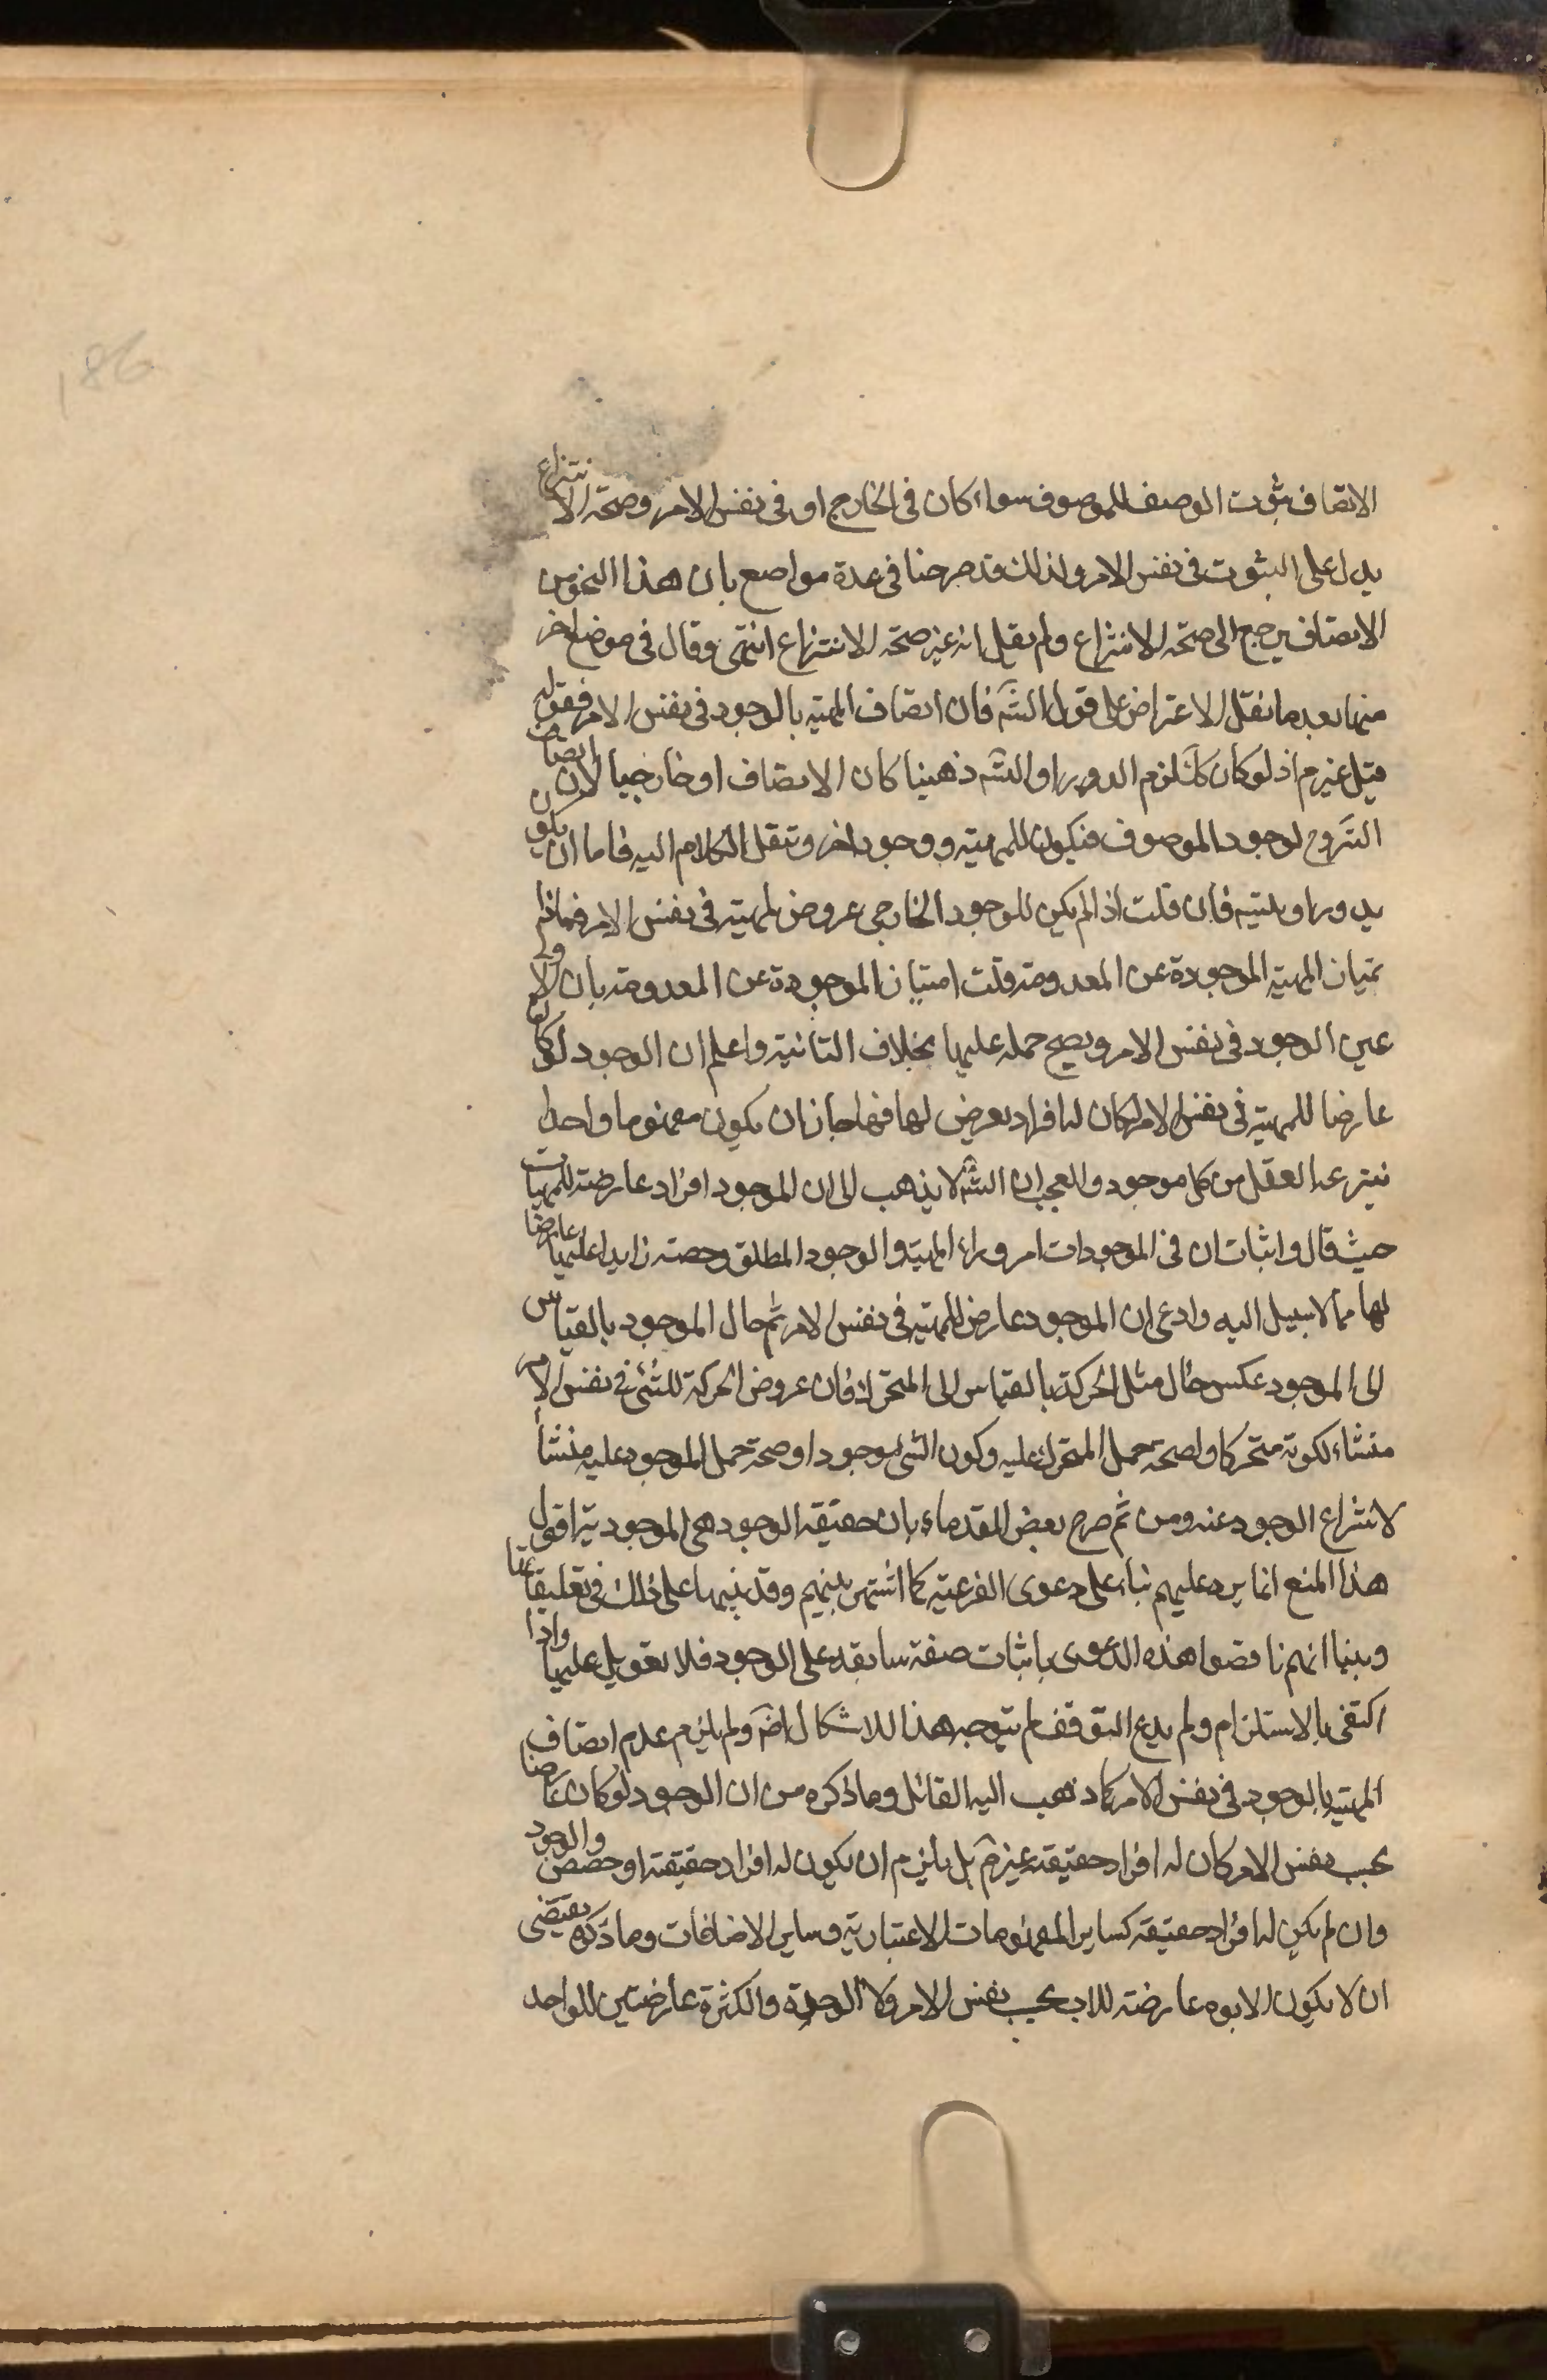 186
الاتصاف ثبوت الوصف للموصوف سواء كان فى الخارج او فى نفس الامر وصحة الانتزاع
يدل على الثبوت فى نفس الامر ولذلك قد صرحنا فى عدة مواضع بان هذا النحو من
الاتصاف يرجع الى صحة الانتزاع ولم يقل انه غير صحة الانتزاع انتهى وقال فى موضع اخر
منها بعد ما نقل الاعتراض على قول الشه فان اتصاف المهية بالوجود فى نفس الامر فقوله
قيل غير م اذ لو كان كك لزم الدور او التسه ذهنيا كان الاتصاف او خارجيا لان اتصاف
لوجود الموصوف فيكون للمهية وجود اخر وننقل الكلام اليه فاما ان يكون
يدور او يتسه فان قلت اذا لم يكن للوجود الخارجى عروض للمهية فى نفس الامر فماذا
تمتاز المهية الموجودة عن المعدومة قلت امتياز الموجودة عن المعدومة بان الاولى
عين الوجود فى نفس الامر ويصح حمله عليها بخلاف الثانية واعلم ان الوجود لو كان
عارضا للمهية فى نفس الامر لكان له افراد يعرض لها فيها جاز ان يكون مفهوما واحدا
ينتزعه العقل من كل موجود والعجب ان الشه لا يذهب الى ان الموجود افراد عارضة للمهيات
حيث قال واثبات ان فى الموجودات امر وراء المهية والوجود المطلق وحصته زايدا عليها عارضا
لها مما لا سبيل اليه وادعى ان الموجود عارض للمهية فى نفس الامر ثم حال الموجود بالقياس
الى الموجود عكس حال مثل الحركة بالقياس الى المتحرك فان عروض الحركة للشئ فى نفس الامر
منشاء لكونه متحركا ولصحة حمل المتحرك عليه وكون الشى موجودا وصحة حمل الموجود عليه منشأ
لانتزاع الوجود عنه ومن ثم صرح بعض القدماء بان حقيقة الوجود هى الموجودية اقول
هذا المنع انما يرد عليهم بناء على دعوى الفرعية كما اشتهر بينهم وقد نبهنا على ذلك فى تعليقاتنا
وبينا انهم ناقضوا هذه الدعوى باثبات صفة سابقة على الوجود فلا تعويل عليها واذا
اكتفى بالاستلزام ولم يدع التوقف لم يتوجه هذا الاشكال اصَه ولم يلزم عدم اتصاف
المهية بالوجود فى نفس الامر كما ذهب اليه القائل وما ذكره من ان الوجود لو كان عارضا
بحسب نفس الامر كان له افراد حقيقة غير م بل يلزم ان يكون له افراد حقيقة او حصص والوجود
وان لم يكن له افراد حقيقة كساير المفهومات الاعتبارية وساير الاضافات وما ذكره يقتضى
ان لا يكون الابوه عارضة للاب بحسب نفس الامر ولا الوحدة والكثرة عارضتين للواحد